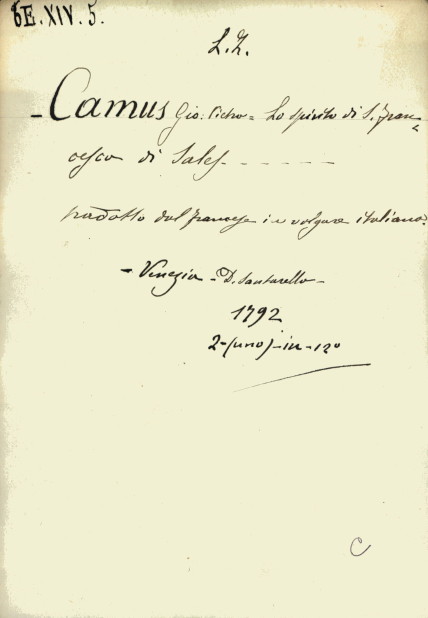 6E.XIV.5.
L.Z.
- Camus Gio: Pietro = Lo spirito di S. Fran=
cesco di Sales - - - - - -
tradotto dal francese in volgare italiano.
- Venezia - D. Santarello -
1792
2-(uno)-in-12º
C